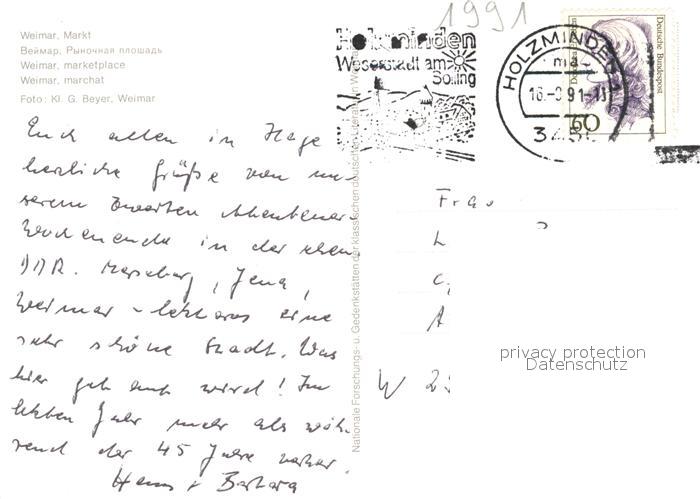 1991
Weimar, Markt
Веймар, Рыночная площадь
Weimar, marketplace
Weimar, marchat
Foto: Kl. G. Beyer, Weimar
Holzminden
Weserstadt am
Solling
HOLZMINDEN
16.-9.91-1
34
Deutsche Bundespost
60
Euch allen in Hage
herzliche Grüße von un-
serem zweiten Abenteuer-
Wochenende in der ehem.
DDR. Merseburg, Jena,
Weimar - letzteres eine
sehr schöne Stadt. Was
hier geb aut wird! Im
letzten Jahr mehr als wäh-
rend der 45 Jahre vorher.
Hans + Barbara
Nationale Forschungs- u. Gedenkstätten der klassischen deutschen Literatur in We
Frau
L
A
W 2
privacy protection
Datenschutz